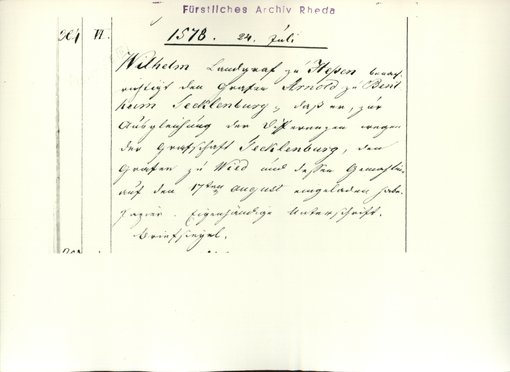 Fürstliches Archiv Rheda
VI. 1578. 24. Juli
Wilhelm Landgraf zu Heßen benach
richtigt den Grafen Arnold zu Bent
heim Tecklenburg, daß er, zur
Ausgleichung der Differenzen wegen
der Grafschaft Tecklenburg, den
Grafen zu Wied und dessen Gemahlin
auf den 17ten August eingeladen habe.
Papier. Eigenhändige Unterschrift.
Briefsiegel.